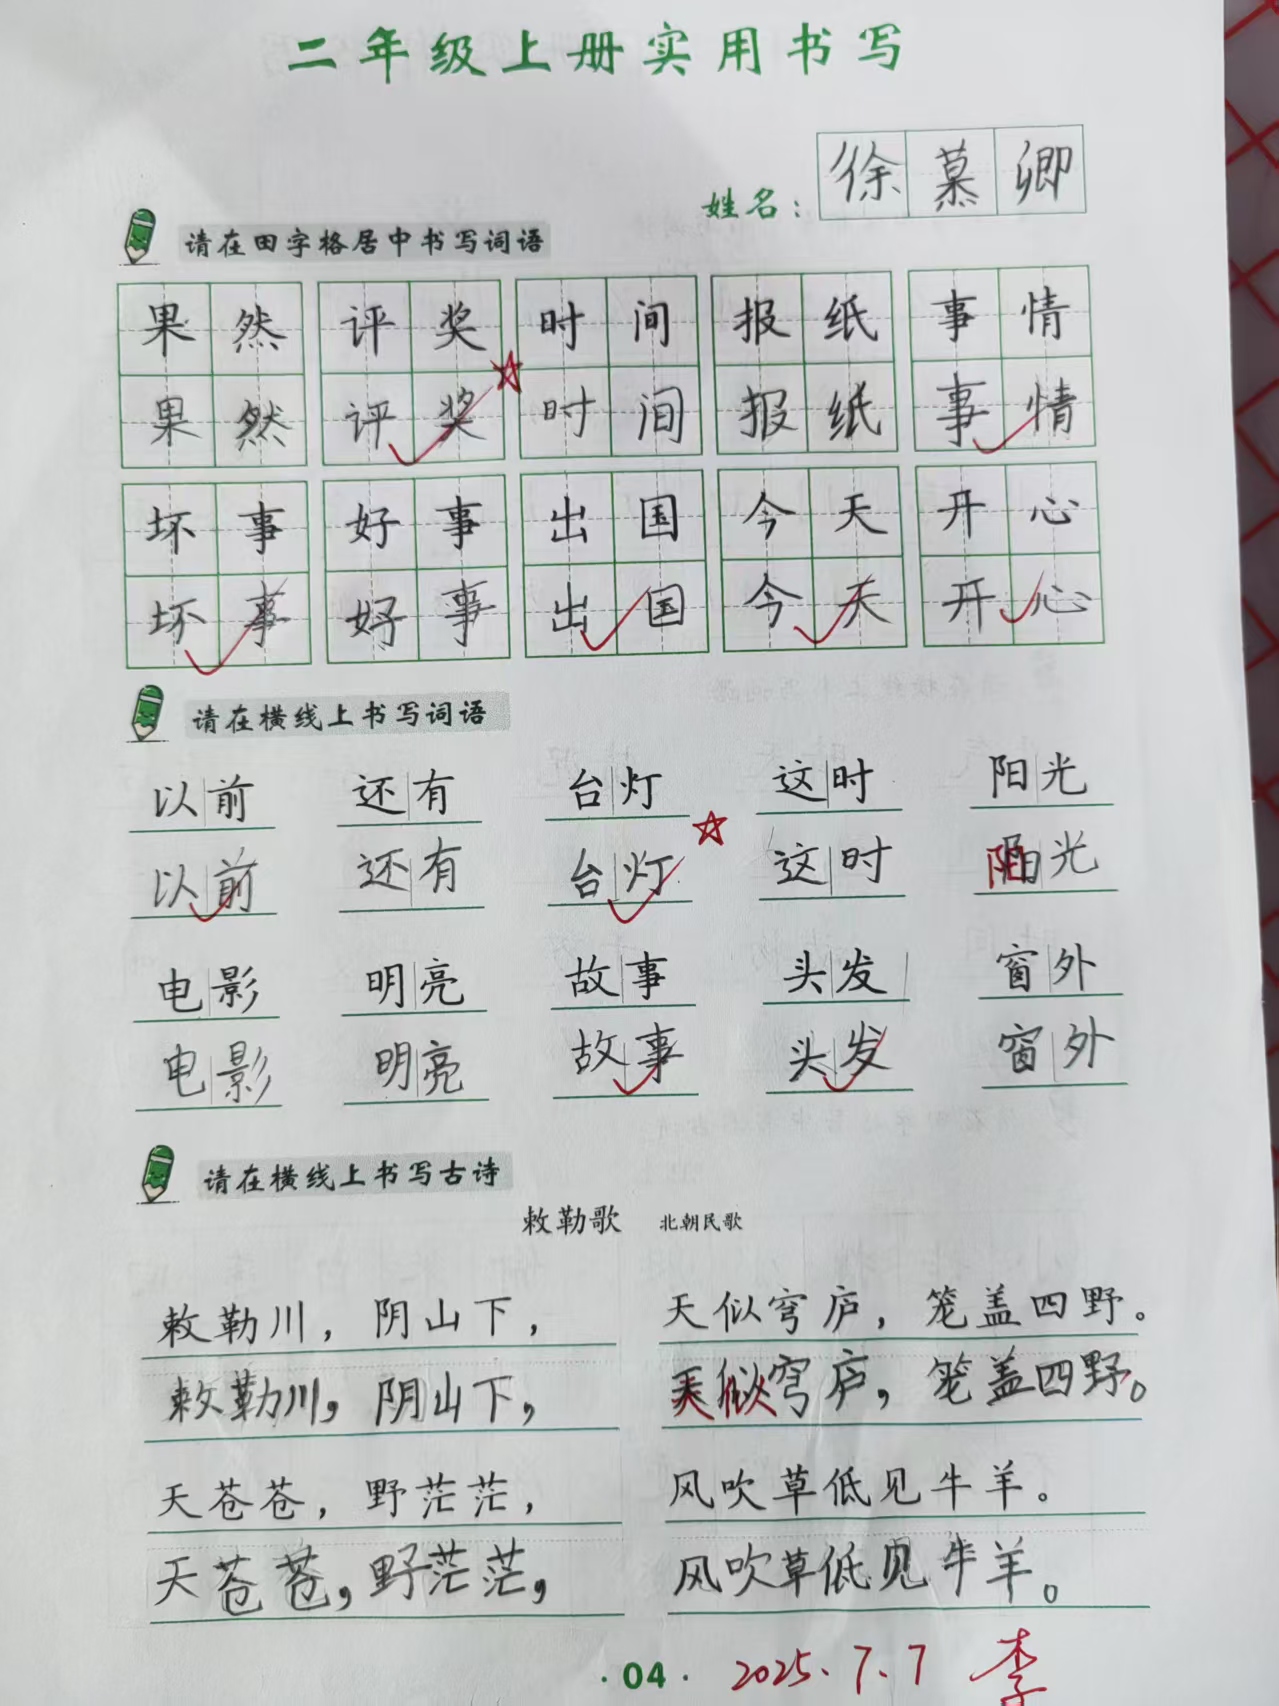 二年级上册实用书写
姓名：徐慕卿
请在田字格居中书写词语
果然 评奖 时间 报纸 事情
果然 评奖 时间 报纸 事情
坏事 好事 出国 今天 开心
坏事 好事 出国 今天 开心
请在横线上书写词语
以前 还有 台灯 这时 阳光
以前 还有 台灯 这时 阳光
电影 明亮 故事 头发 窗外
电影 明亮 故事 头发 窗外
请在横线上书写古诗
敕勒歌 北朝民歌
敕勒川，阴山下， 天似穹庐，笼盖四野。
敕勒川，阴山下， 天似穹庐，笼盖四野。
天苍苍，野茫茫， 风吹草低见牛羊。
天苍苍，野茫茫， 风吹草低见牛羊。
·04· 2025.7.7 李